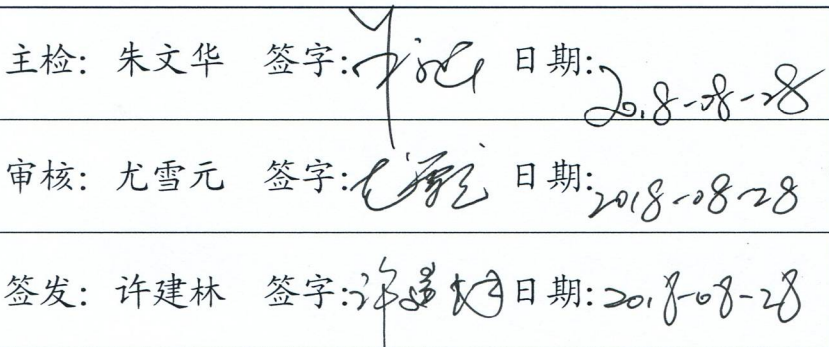 主检: 朱文华 签字: 日期: 2018-08-28
审核: 尤雪元 签字: 尤雪元 日期: 2018-08-28
签发: 许建林 签字: 许建林 日期: 2018-08-28